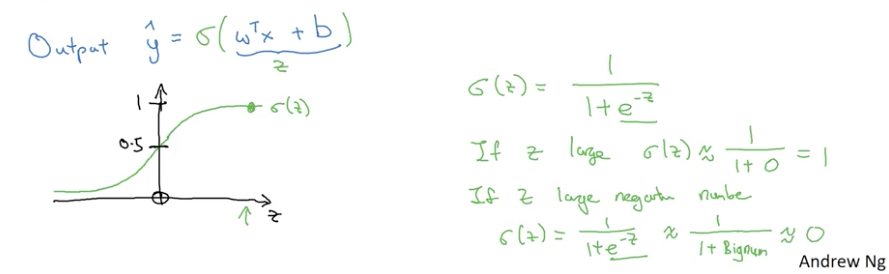 Output ŷ = σ(wᵀx + b)
z
1
σ(z)
0.5
z
σ(z) = 1 / (1 + e^(-z))
If z large σ(z) ≈ 1 / (1 + 0) = 1
If z large negative number
σ(z) = 1 / (1 + e^(-z)) ≈ 1 / (1 + Bignum) ≈ 0
Andrew Ng